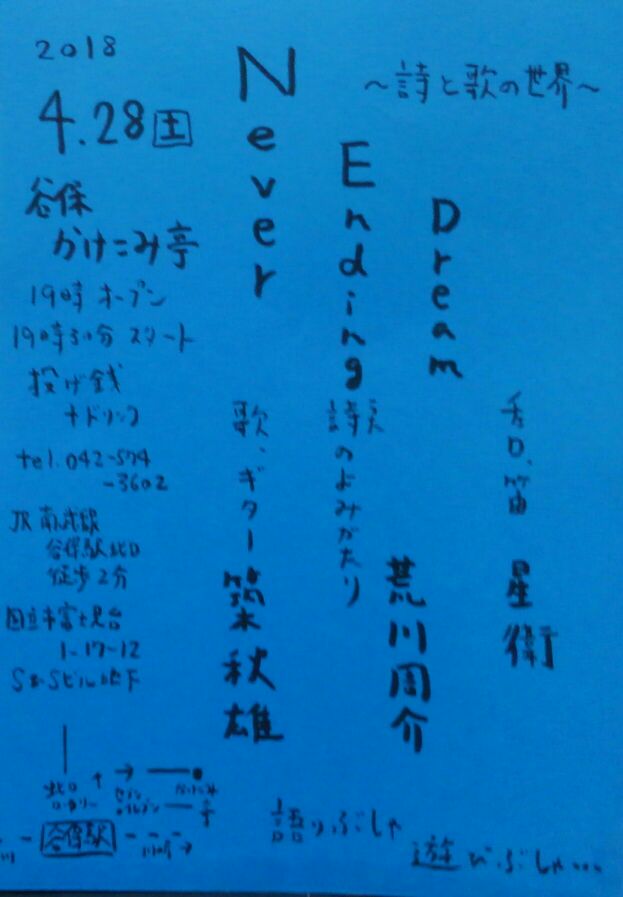 2018
4.28土
谷保
かけこみ亭
19時 オープン
19時30分 スタート
投げ銭
+ドリンク
tel.042-574
-3602
JR 南武線
谷保駅北口
徒歩2分
国立市富士見台
1-17-12
S&Sビル地下
Never
Ending
Dream
〜詩と歌の世界〜
歌、ギター 築秋雄
詩のよみがたり 荒川周介
チェロ、笛 星衛
語りぶしゃ
遊びぶしゃ…
北口
ロータリー
セブン
イレブン
谷保駅